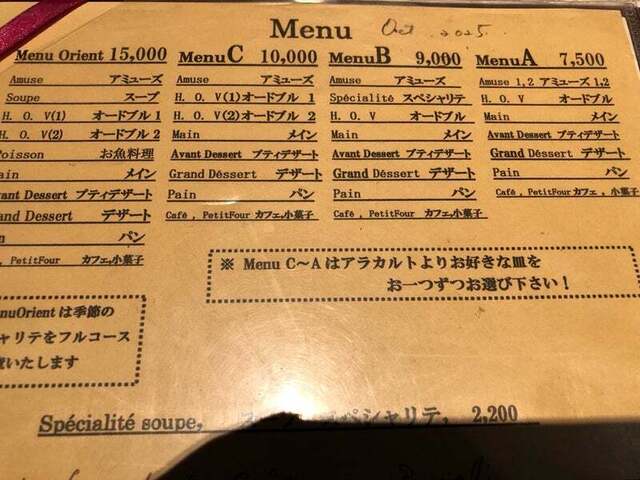 Menu Oct 2025.
Menu Orient 15,000
Amuse アミューズ
Soupe スープ
H. O. V(1) オードブル 1
H. O. V(2) オードブル 2
Poisson お魚料理
ain メイン
vant Dessert プティデザート
rand Dessert デザート
n パン
, PetitFour カフェ,小菓子
Menu C 10,000
Amuse アミューズ
H. O. V(1)オードブル 1
H. O. V(2)オードブル 2
Main メイン
Avant Dessert プティデザート
Grand Déssert デザート
Pain パン
Café , PetitFour カフェ,小菓子
Menu B 9,000
Amuse アミューズ
Spécialité スペシャリテ
H. O. V オードブル
Main メイン
Avant Dessert プティデザート
Grand Déssert デザート
Pain パン
Café , PetitFour カフェ,小菓子
Menu A 7,500
Amuse 1,2 アミューズ 1,2
H. O. V オードブル
Main メイン
Avant Dessert プティデザート
Grand Déssert デザート
Pain パン
Café , PetitFour カフェ , 小菓子
※ Menu C～A はアラカルトよりお好きな皿を
お一つずつお選び下さい！
nuOrient は季節の
ャリテをフルコース
いたします
Spécialité soupe, スペシャリテ, 2,200